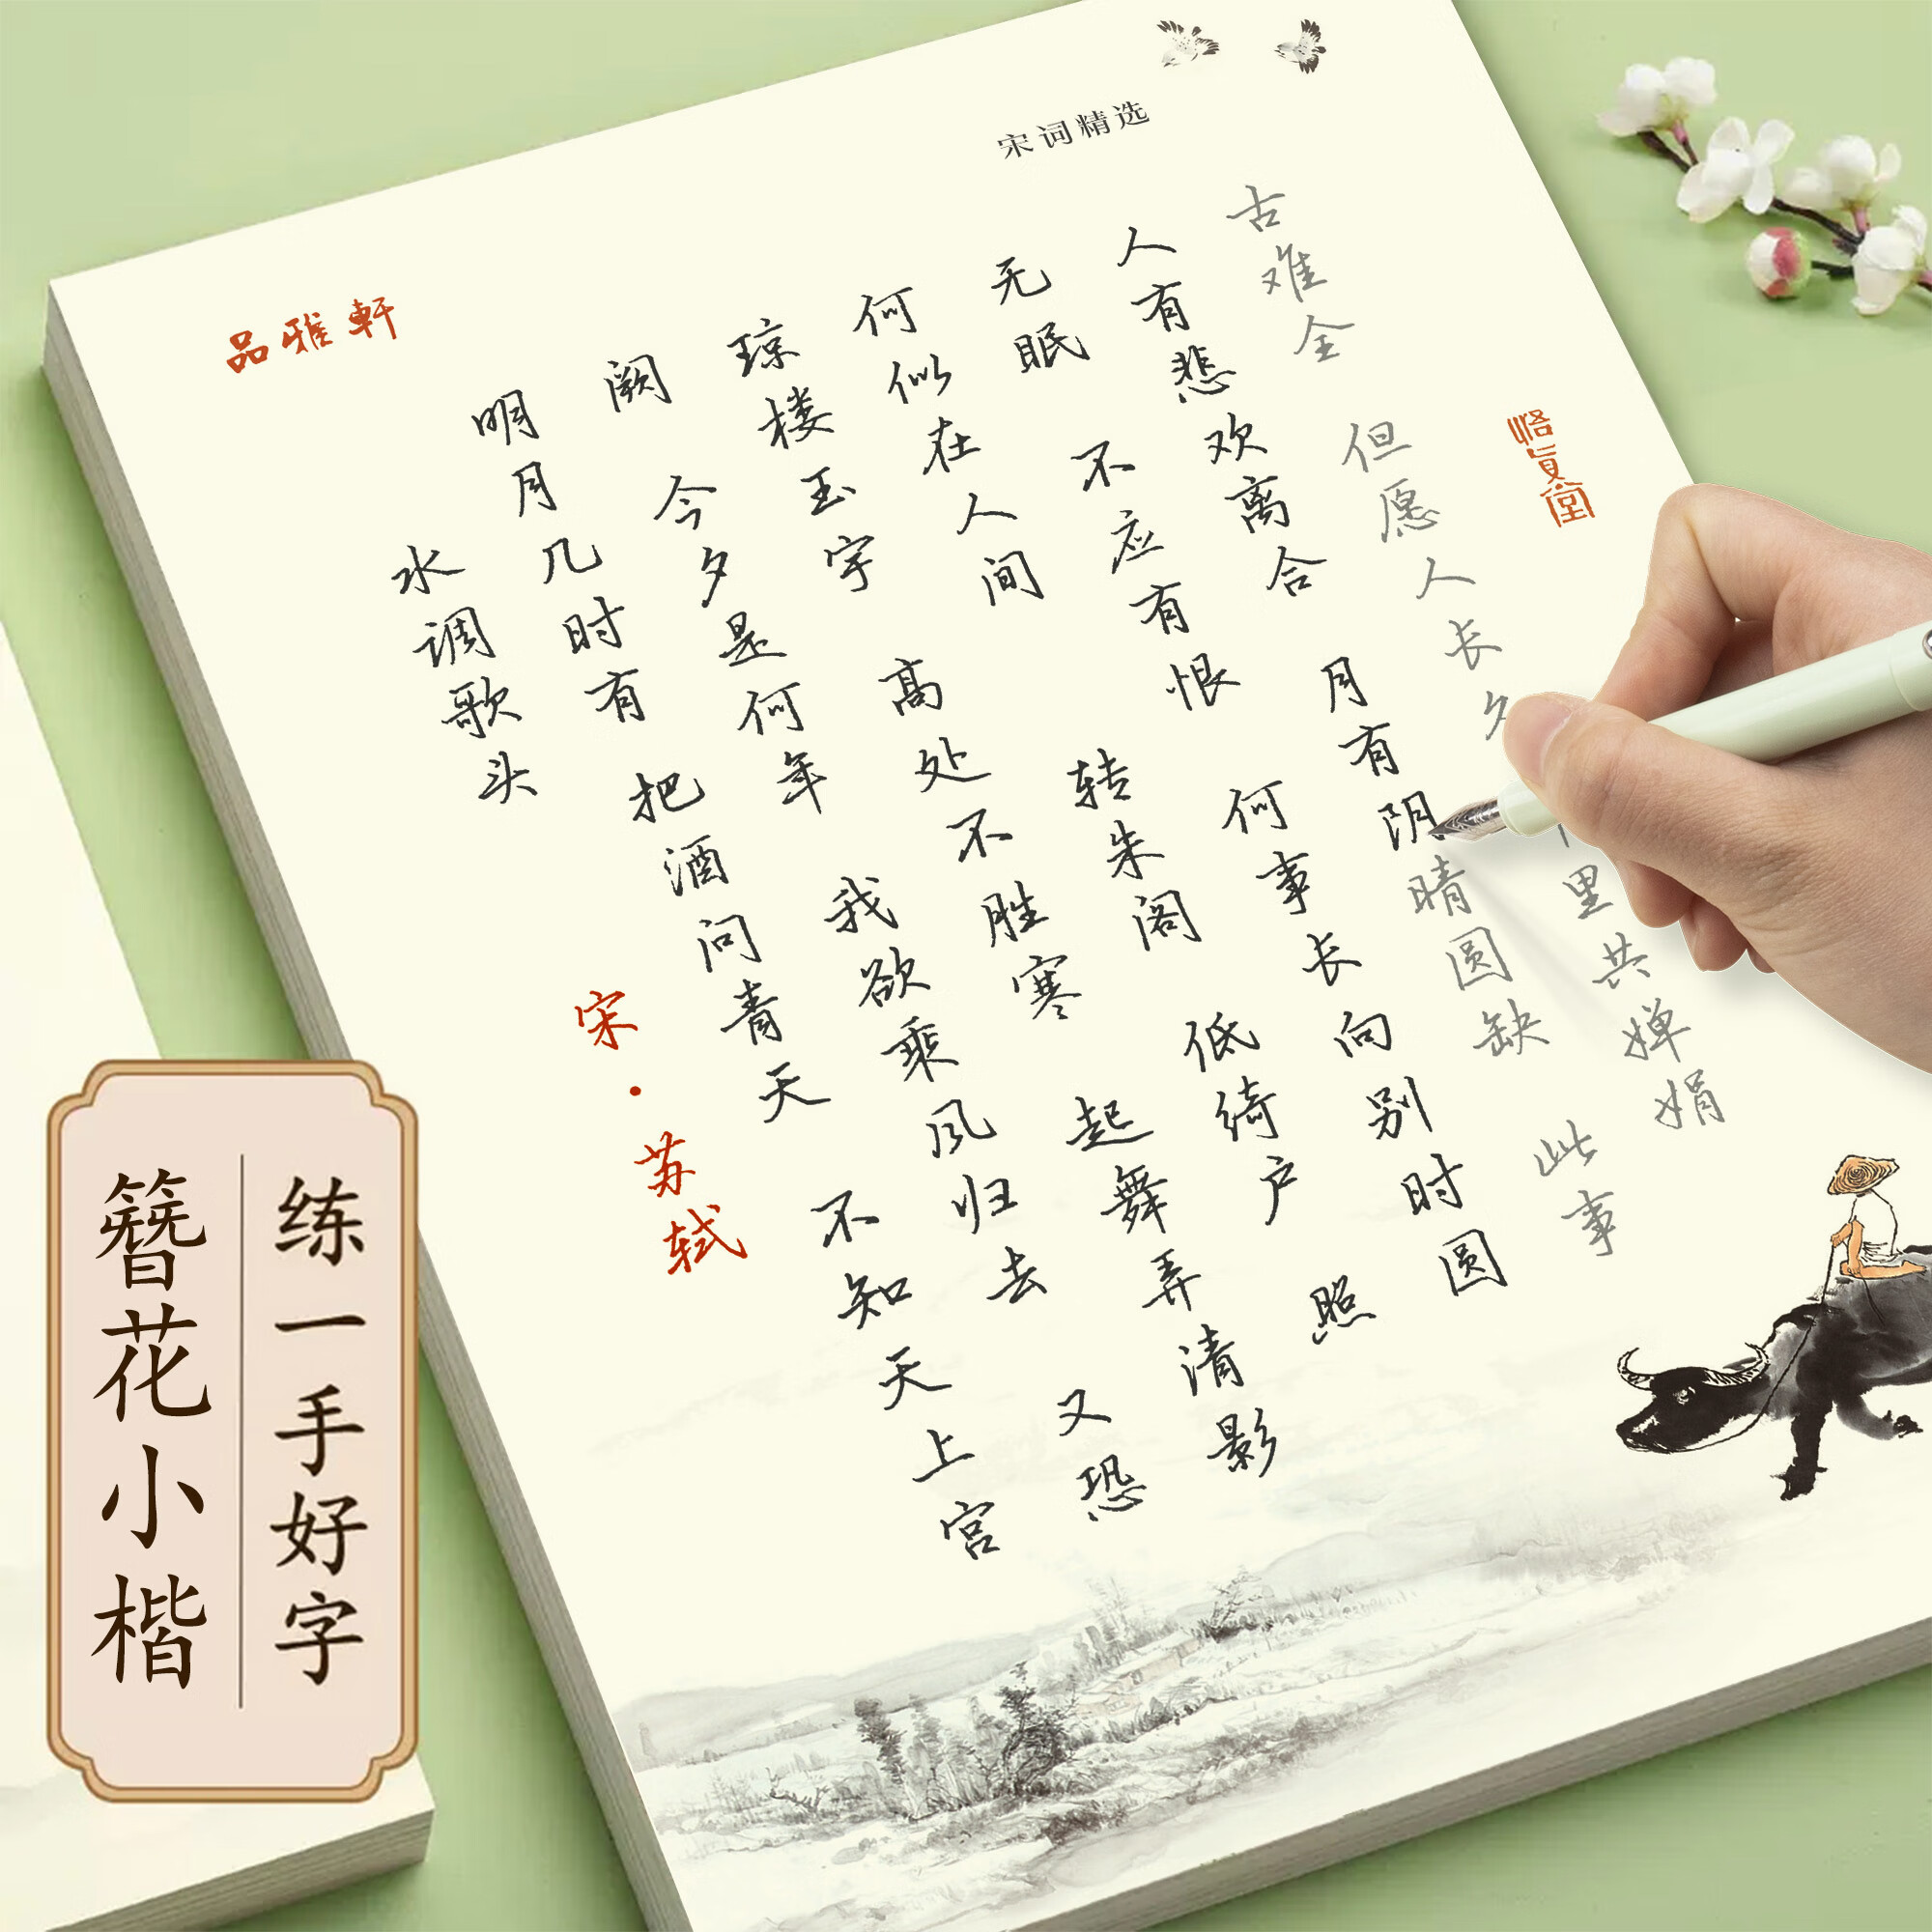 宋词精选
品雅軒
水调歌头
宋·苏轼
明月几时有 把酒问青天 不知天上宫
阙 今夕是何年 我欲乘风归去 又恐
琼楼玉宇 高处不胜寒 起舞弄清影
何似在人间 转朱阁 低绮户 照
无眠 不应有恨 何事长向别时圆
人有悲欢离合 月有阴晴圆缺 此事
古难全 但愿人长久 里共婵娟
练一手好字
簪花小楷